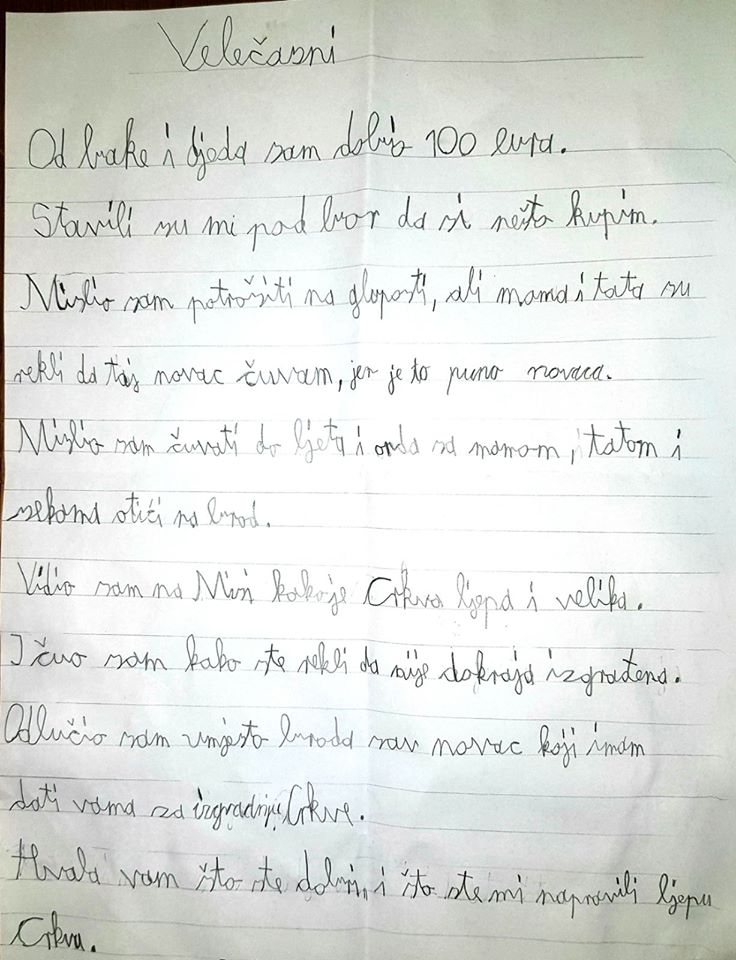 Velečasni
Od bake i djeda sam dobio 100 eura.
Stavili su mi pod bor da si nešto kupim.
Mislio sam potrošiti na gluposti, ali mama i tata su
rekli da taj novac čuvam, jer je to puno novaca.
Mislio sam čuvati do ljeta i onda sa mamom, tatom i
sekama otići na brod.
Vidio sam na Misi kako je Crkva ljepa i velika.
I čuo sam kako ste rekli da nije dokraja izgrađena.
Odlučio sam umjesto broda sav novac koji imam
dati vama za izgradnju Crkve.
Hvala vam što ste dobri, i što ste mi napravili ljepu
Crkvu.